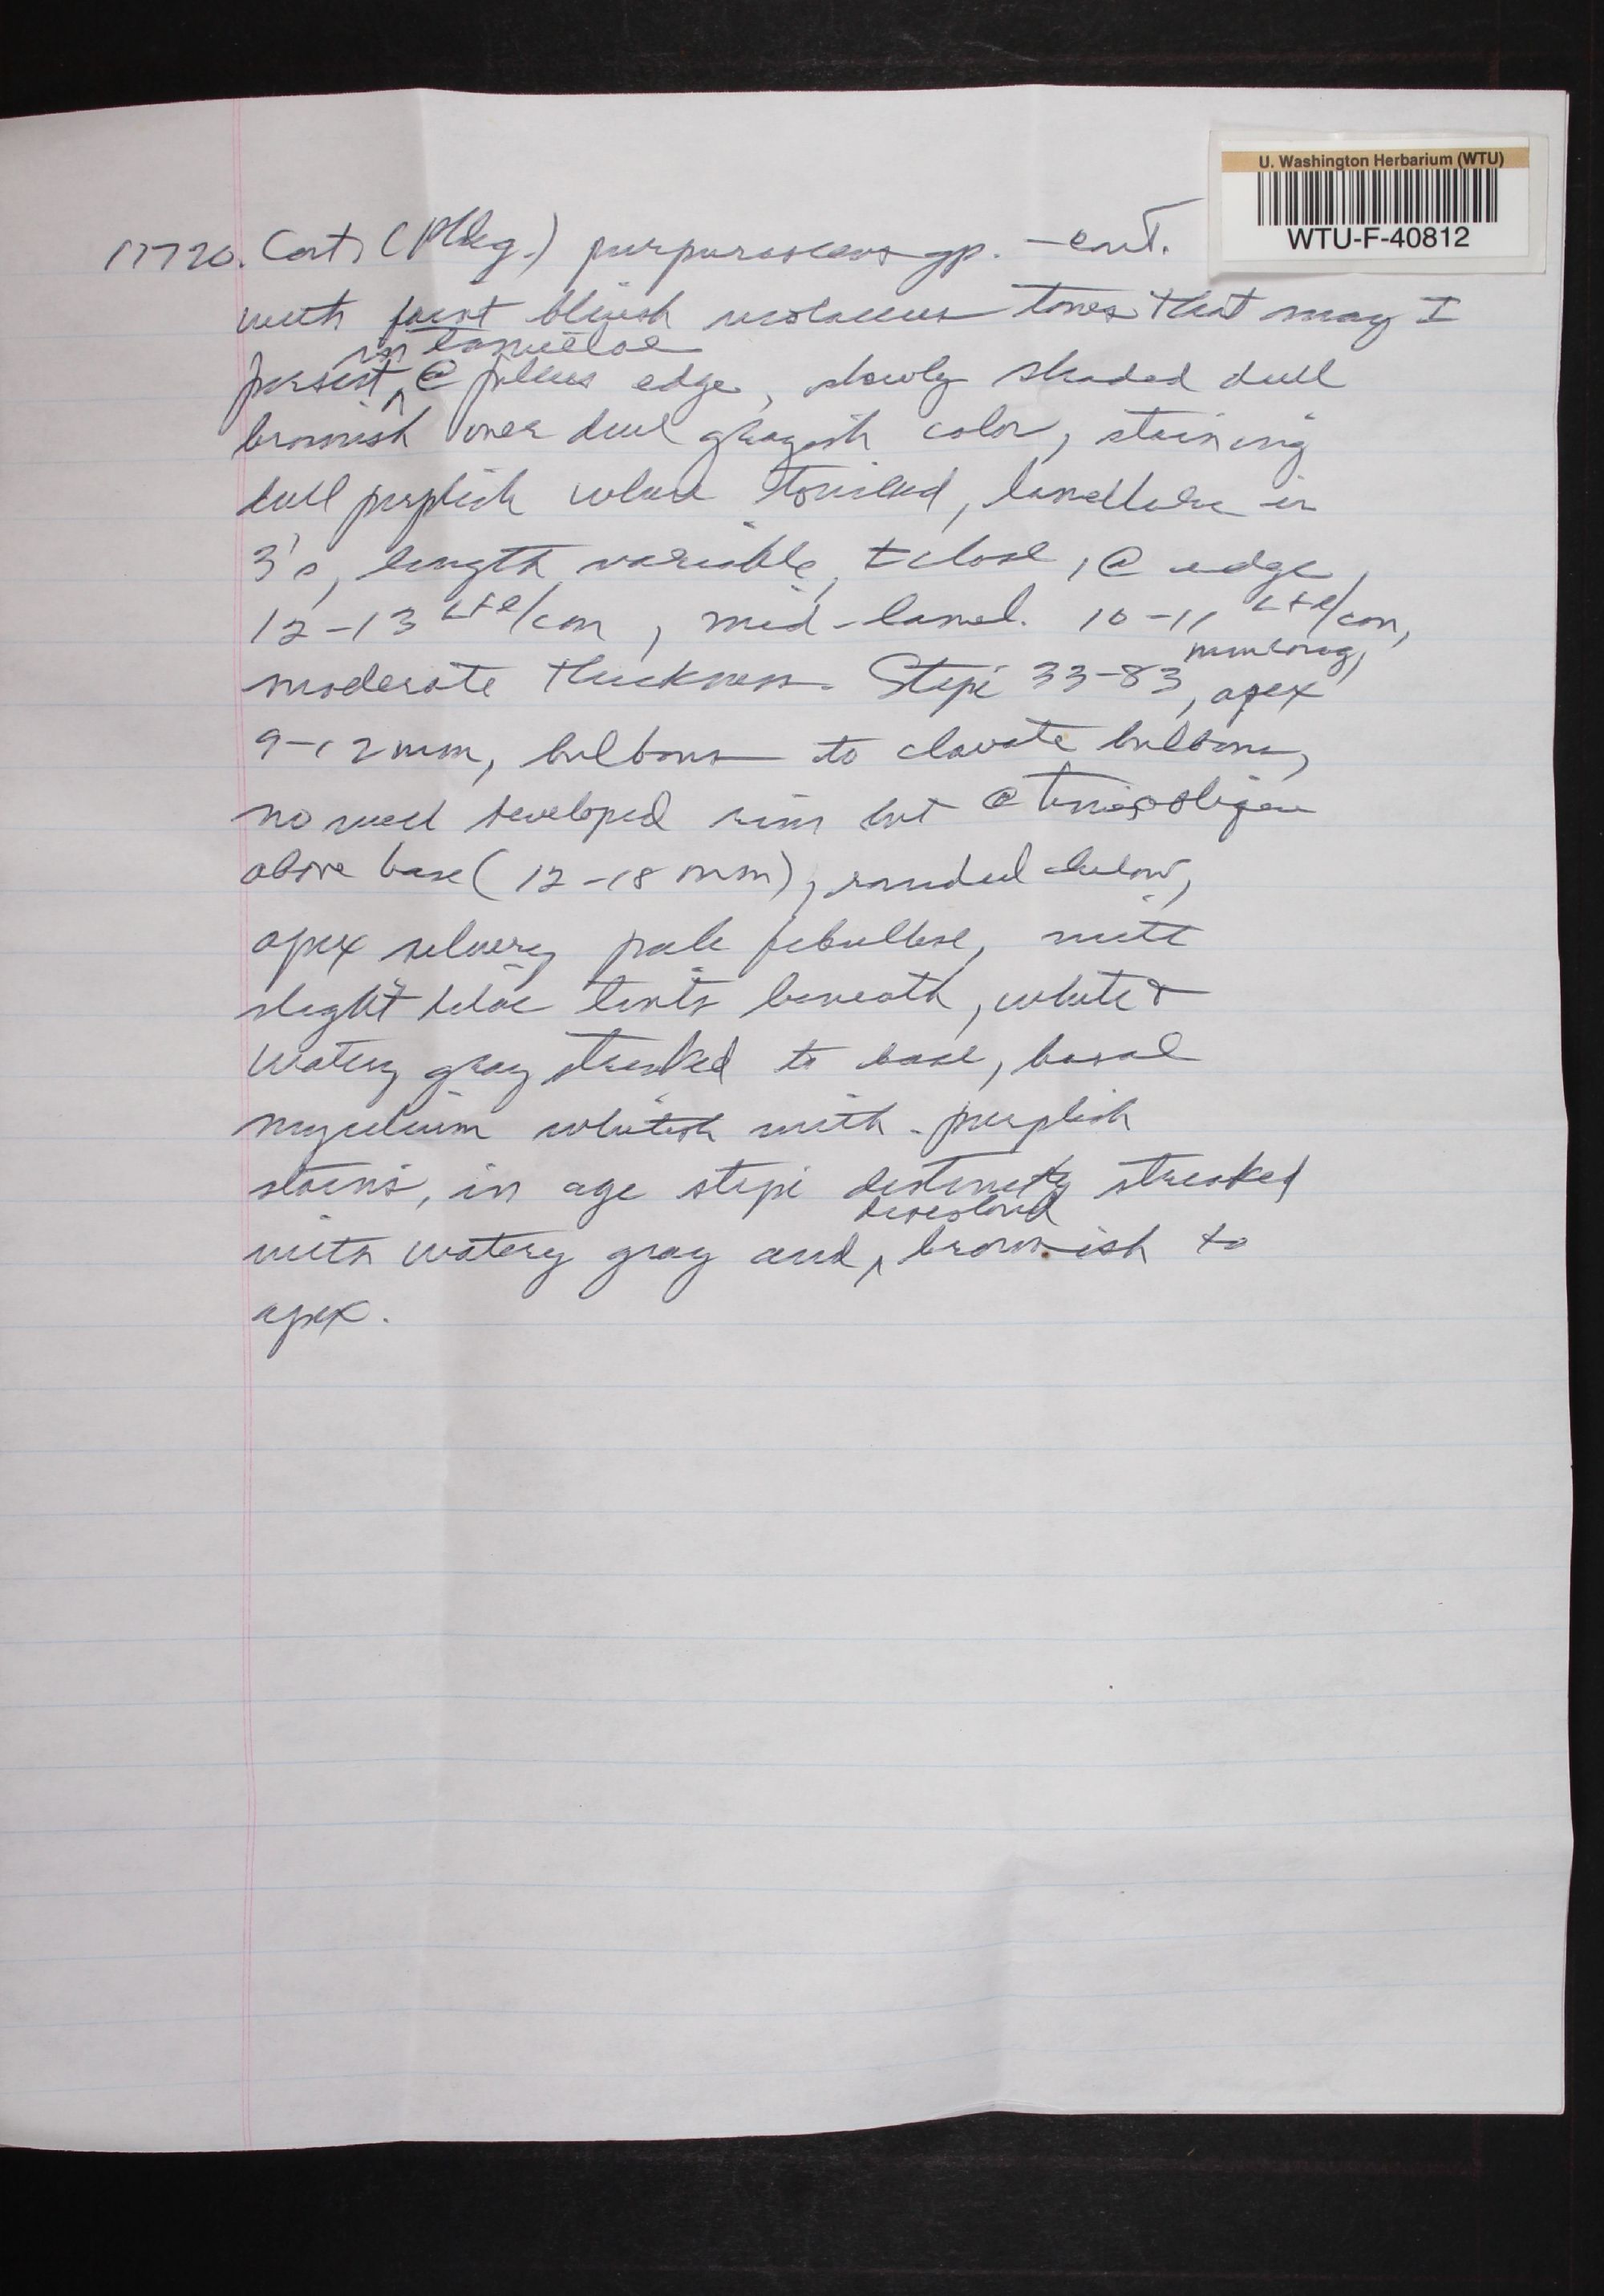 U. Washington Herbarium (WTU)
WTU-F-40812
17720. Cort. (Phleg.) purpurascens gp. - cont.
with faint bluish violaceus tones that may I
in lamellae
persist, @ pileus edge, slowly shaded dull
brownish over dull grayish color, staining
dull purplish when bruised, lamellulae in
3's, length variable, ± close, @ edge,
12-13 L+l/cm, mid-lamel. 10-11 L+l/cm,
mm long,
moderate thickness. Stipe 33-83, apex
9-12 mm, bulbous to clavate bulbous,
no well developed rim but @ times
above base (12-18 mm), rounded below,
apex silvery pale fibrillose, with
slight lilac tints beneath, white &
watery gray streaked to base, basal
mycelium whitish with purplish
stains, in age stipe distinctly streaked
with watery gray and brownish to
apex.